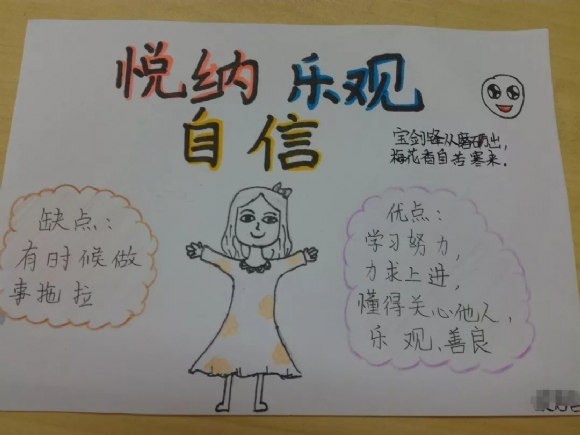 悦纳 乐观
自信
宝剑锋从磨砺出,
梅花香自苦寒来.
缺点:
有时候做
事拖拉
优点:
学习努力,
力求上进,
懂得关心他人,
乐观、善良